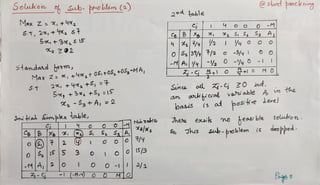 Solution of Sub-problem (2)
Max Z = x₁ + 4x₂
S.T, 2x₁ + 4x₂ ≤ 7
5x₁ + 3x₂ ≤ 15
x₂ ≥ 2
Standard form,
Max Z = x₁ + 4x₂ + 0S₁ + 0S₂ + 0S₃ - MA₁
S.T 2x₁ + 4x₂ + S₁ = 7
5x₁ + 3x₂ + S₂ = 15
x₂ - S₃ + A₁ = 2
Initial Simplex table,
Cj 1 4 0 0 0 -M Min ratio
CB B XB x₁ x₂ S₁ S₂ S₃ A₁ XB/x₂
0 S₁ 7 2 4 1 0 0 0 7/4
0 S₂ 15 5 3 0 1 0 0 15/3
-M A₁ 2 0 1 0 0 -1 1 2/1
Zj - Cj -1 -M-4 0 0 M 0
2nd table
Cj 1 4 0 0 0 -M
CB B XB x₁ x₂ S₁ S₂ S₃ A₁
4 x₂ 7/4 1/2 1 1/4 0 0 0
0 S₂ 39/4 7/2 0 -3/4 1 0 0
-M A₁ 1/4 -1/2 0 -1/4 0 -1 1
Zj - Cj
Since all Zj - Cj ≥ 0 but
an artificial variable A₁ in the
basis is at positive level
There exists no feasible solution.
So This sub-problem is dropped.